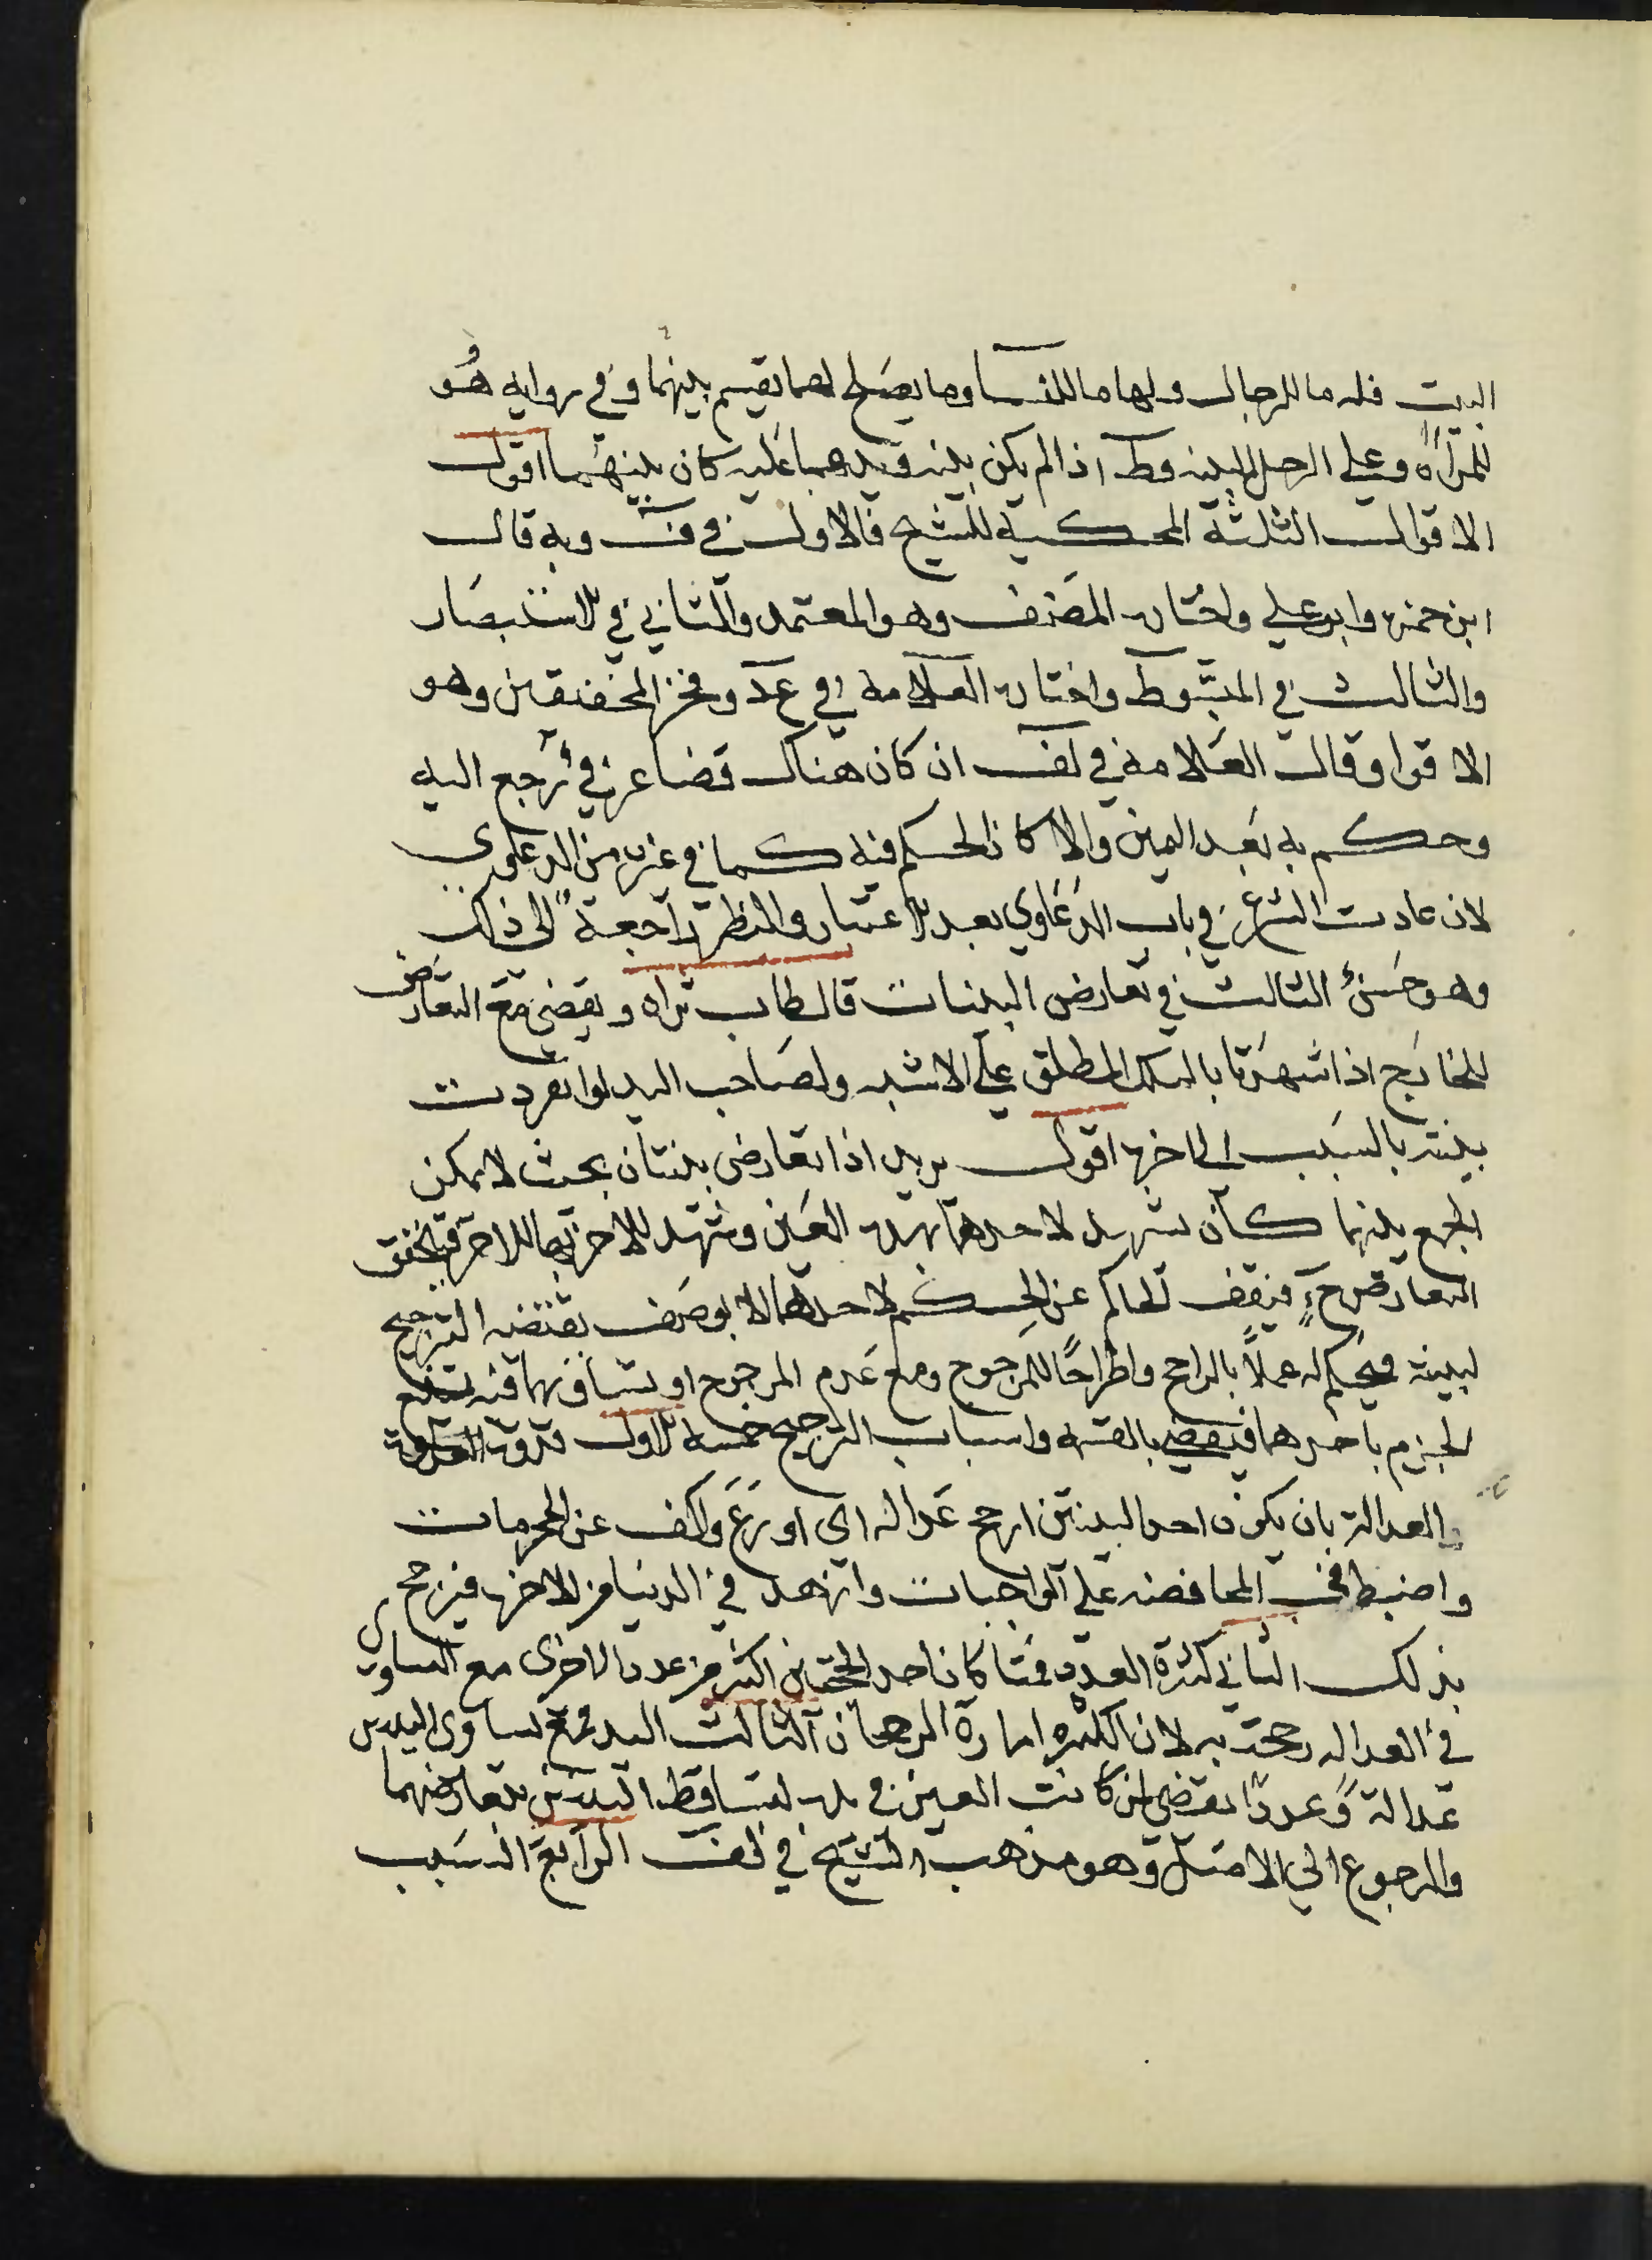 البيت فله ما للرجال ولها ما للنسا وما يصلح لهما يقسم بينهما وفي روايه هو
للمرأه وعلى الرجل البينه وط اذا لم يكن بينه ويدهما عليه كان بينهما اقول
الاقوال الثلثة المحكية للشيخ فالاول في ف وبه قال
ابن حمزه وابو علي واختاره المصنف وهو المعتمد والثاني في الاستبصار
والثالث في المبسوط واختاره العلامه في عد وفخر المحققين وهو
الاقوا وقال العلامة في لف ان كان هناك قضا عرفي رجع اليه
وحكم به بعد اليمين والا كان الحكم فيه كما في غيره من الدعاوى
لان عادت الشرع في باب الدعاوي بعد الاعتبار والنظر راجعة الى ذلك
وهو حسن الثالث في تعارض البينات قال طاب ثراه ويقضى مع التعارض
للخارج اذا شهدتا بالملك المطلق على الاشبه ولصاحب اليد لو انفردت
بينته بالسبب الى اخرها اقول يريد اذا تعارض بينتان بحيث لا يمكن
الجمع بينهما كأن تشهد لاحدهما بهذه العين وتشهد للاخر بها للاخر فيتحقق
التعارض ح فيقف الحاكم عن الحكم لاحدهما الا بوصف يقتضيه الترجيح
لبينة فيحكم له عملاً بالراجح واطراحًا للمرجوح ومع عدم المرجوح او تساويهما فيه يمتنع
الجزم باحدهما فيقضي بالقرعه واسباب الترجيح خمسه الاول قوة
العدالة بان يكون احد البينتين ارجح عداله اى اورع واكف عن المحرمات
واضبط في المحافضه على الواجبات وازهد في الدنيا من الاخرى فيرجح
بذلك الثاني كثرة العدد فمتا كان احد الحجتين اكثر من عدد الاخرى مع التساوي
في العداله رجحت به لان الكثره امارة الرجحان الثالث اليد فمع تساوى اليدين
عدالة وعددًا يقضى لمن كانت العين في يده لتساقط البينتين بتعارضهما
والرجوع الي الاصل وهو مذهب الشيخ في لف الرابع السبب